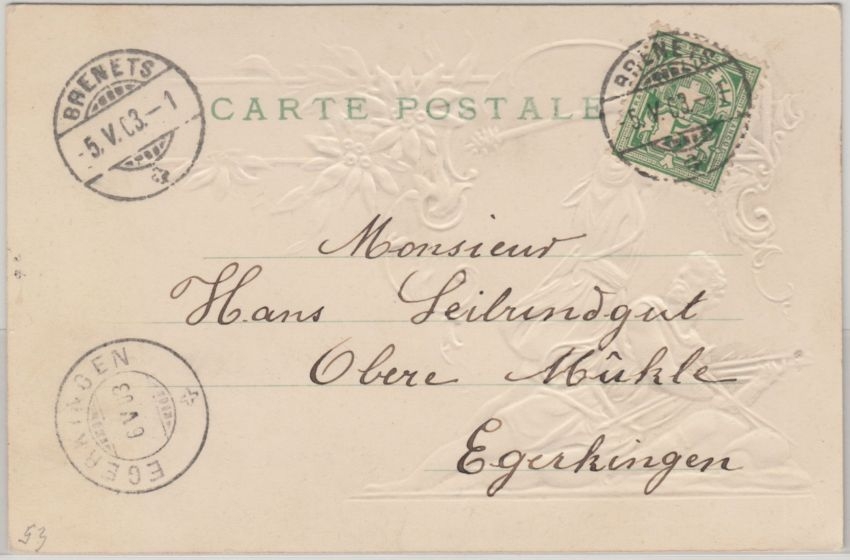 BRENETS
-5.V.03.-1
CARTE POSTALE
BRENETS
-5.V.03.-
HELVETIA
Monsieur
Hans Leibundgut
Obere Mühle
Egerkingen
EGERKINGEN
6 V 03
53